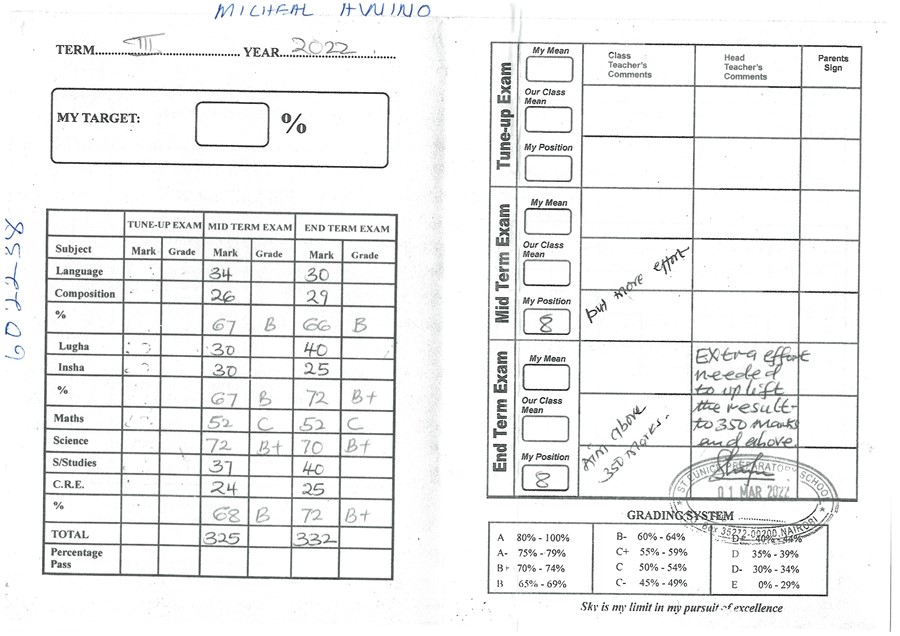 MICHEAL AVUINO
TERM III YEAR 2022
MY TARGET: %
6022-58
TUNE-UP EXAM MID TERM EXAM END TERM EXAM
Subject Mark Grade Mark Grade Mark Grade
Language 34 30
Composition 26 29
% 67 B 66 B
Lugha 30 40
Insha 30 25
% 67 B 72 B+
Maths 52 C 52 C
Science 72 B+ 70 B+
S/Studies 37 40
C.R.E. 24 25
% 68 B 72 B+
TOTAL 325 332
Percentage Pass
Class Teacher's Comments
Head Teacher's Comments
Parents Sign
Tune-up Exam
My Mean
Our Class Mean
My Position
Mid Term Exam
My Mean
Our Class Mean
My Position 8
put more effort
End Term Exam
My Mean
Our Class Mean
My Position 8
Aim above
350 marks.
Extra effort
needed
to uplift
the result
to 350 marks
and above.
ST EUNICE PREPARATORY SCHOOL
01 MAR 2022
Box 35272-00200 NAIROBI
GRADING SYSTEM
A 80% - 100% B- 60% - 64% D+ 40% - 44%
A- 75% - 79% C+ 55% - 59% D 35% - 39%
B+ 70% - 74% C 50% - 54% D- 30% - 34%
B 65% - 69% C- 45% - 49% E 0% - 29%
Sky is my limit in my pursuit of excellence